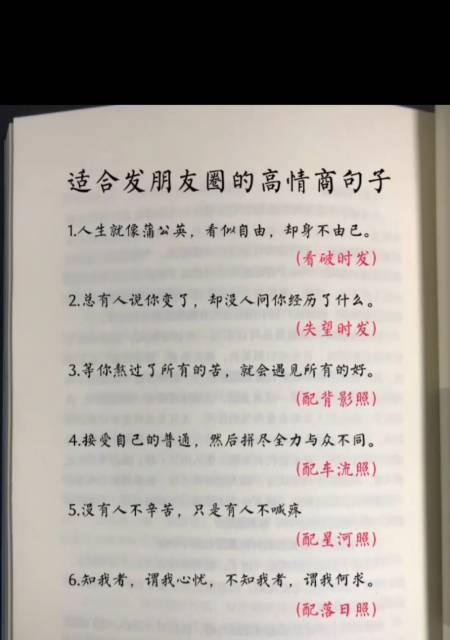 适合发朋友圈的高情商句子
1.人生就像蒲公英，看似自由，却身不由己。
(看破时发)
2.总有人说你变了，却没人问你经历了什么。
(失望时发)
3.等你熬过了所有的苦，就会遇见所有的好。
(配背影照)
4.接受自己的普通，然后拼尽全力与众不同。
(配车流照)
5.没有人不辛苦，只是有人不喊疼
(配星河照)
6.知我者，谓我心忧，不知我者，谓我何求。
(配落日照)